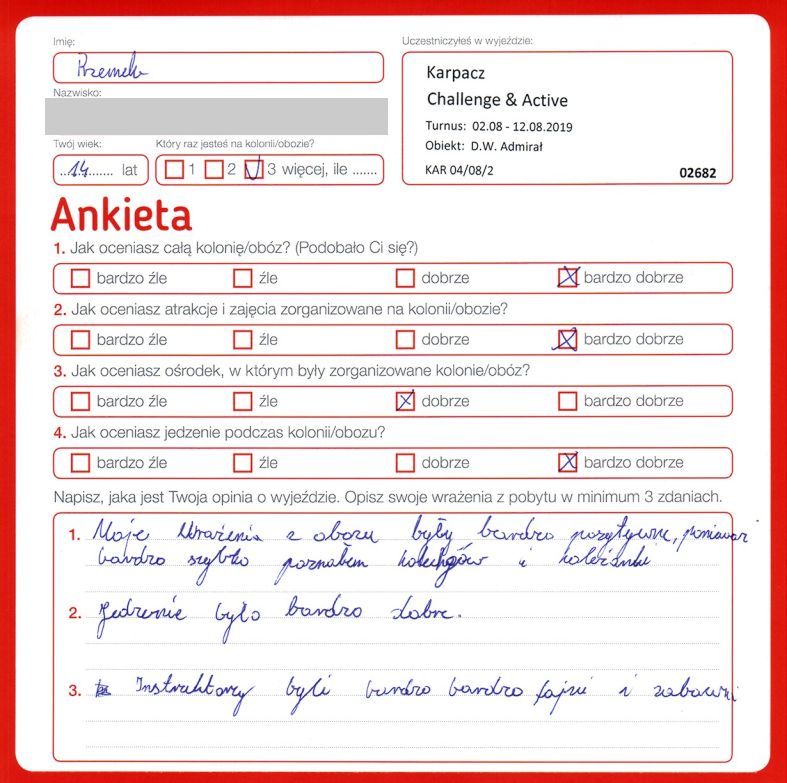 Imię:
Przemek
Nazwisko:
Twój wiek:
14 lat
Który raz jesteś na kolonii/obozie?
1 2 3 więcej, ile .......
Uczestniczyłeś w wyjeździe:
Karpacz
Challenge & Active
Turnus: 02.08 - 12.08.2019
Obiekt: D.W. Admirał
KAR 04/08/2 02682
Ankieta
1. Jak oceniasz całą kolonię/obóz? (Podobało Ci się?)
bardzo źle źle dobrze bardzo dobrze
2. Jak oceniasz atrakcje i zajęcia zorganizowane na kolonii/obozie?
bardzo źle źle dobrze bardzo dobrze
3. Jak oceniasz ośrodek, w którym były zorganizowane kolonie/obóz?
bardzo źle źle dobrze bardzo dobrze
4. Jak oceniasz jedzenie podczas kolonii/obozu?
bardzo źle źle dobrze bardzo dobrze
Napisz, jaka jest Twoja opinia o wyjeździe. Opisz swoje wrażenia z pobytu w minimum 3 zdaniach.
1. Moje Wrażenia z obozu były bardzo pozytywne, ponieważ
bardzo szybko poznałem kolegów i koleżanki
2. Jedzenie było bardzo dobre.
3. Instruktorzy byli bardzo bardzo fajni i zabawni